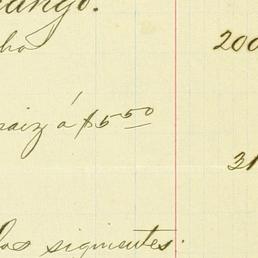 ango.
ho 200
raiz á $5.50
31
los siguientes: